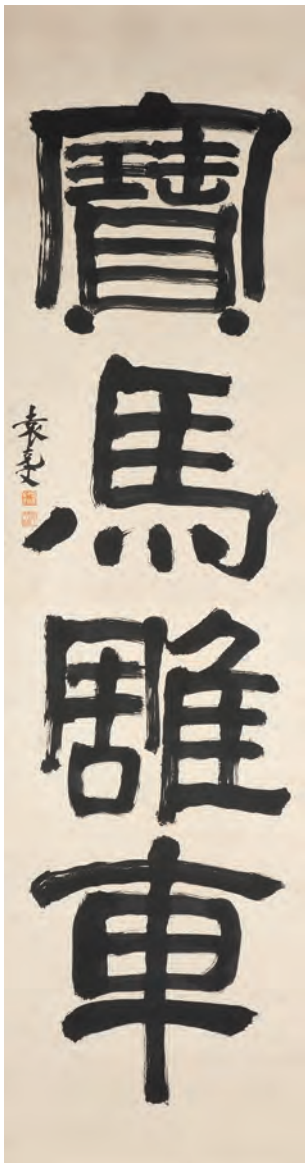 寶馬雕車
袁克文